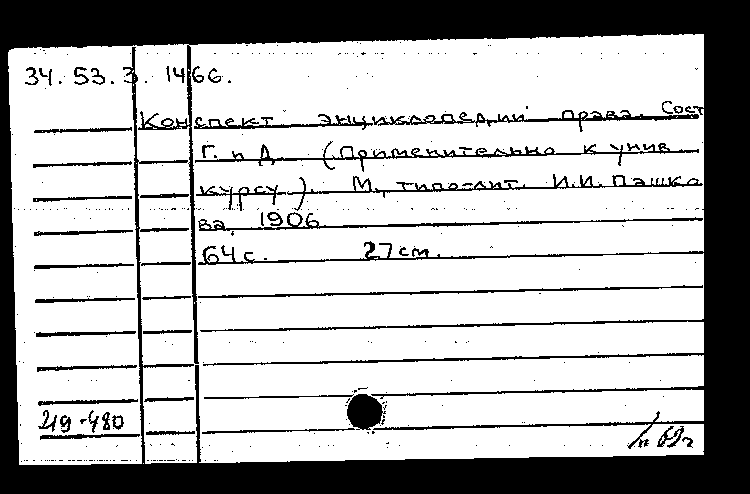 34. 53. 3. 1466.
Конспект энциклопедии права. Сост
Г. и Д. (Применительно к унив.
курсу). М., типо-лит. И.И. Пашко
ва, 1906
64 с. 27 см.
219-480
п 69г